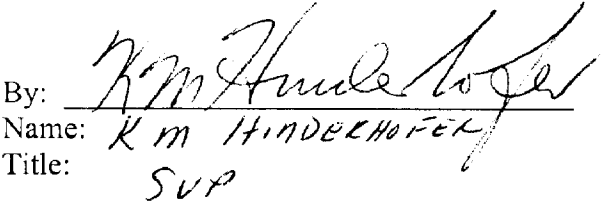 By: KM Hinderhofer
Name: KM HINDERHOFER
Title:
SVP